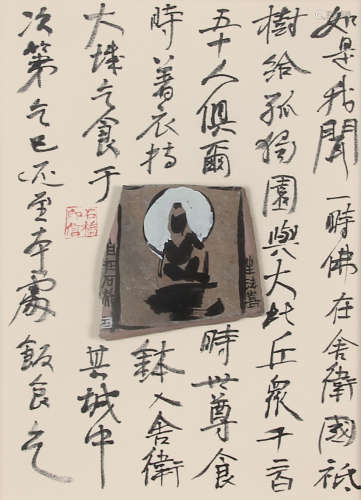 如是我聞 一時佛在舍衛國祇
樹給孤獨園與大比丘眾千二百
五十人俱爾 時世尊食
時著衣持 鉢入舍衛
大城乞食于 其城中
次第乞已还至本處飯食乞